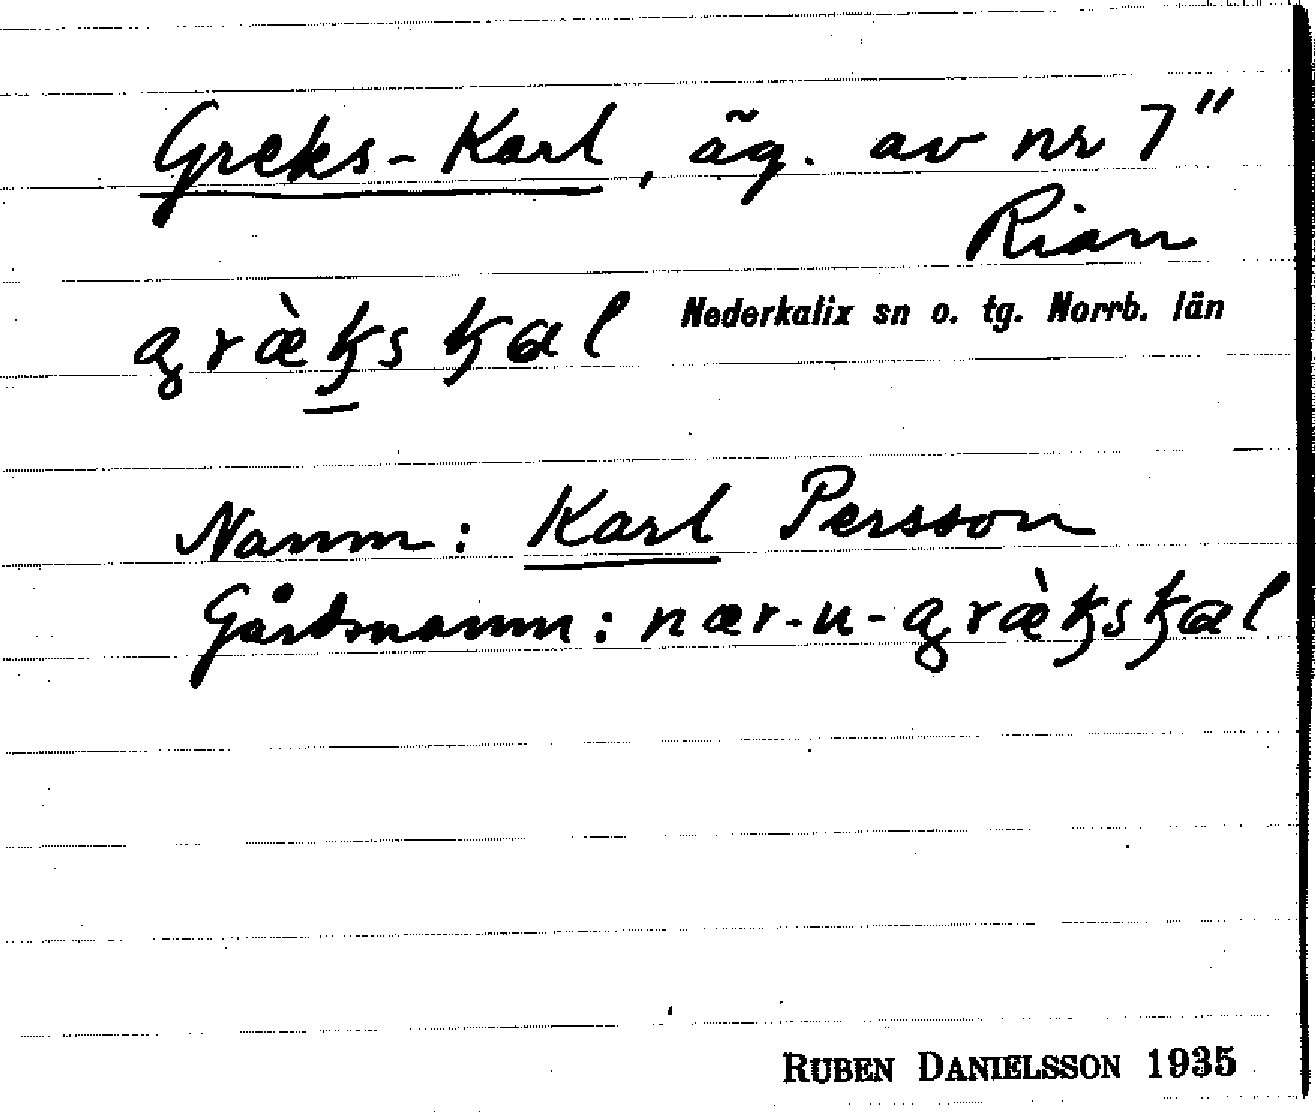 Greks-Karl, äg. av nr 7"
Rian
græ̀ꜧs ꜧal Nederkalix sn o. tg. Norrb. län
Namn: Karl Persson
Gårdsnamn: nær-u-græ̀ꜧsꜧal
RUBEN DANIELSSON 1935